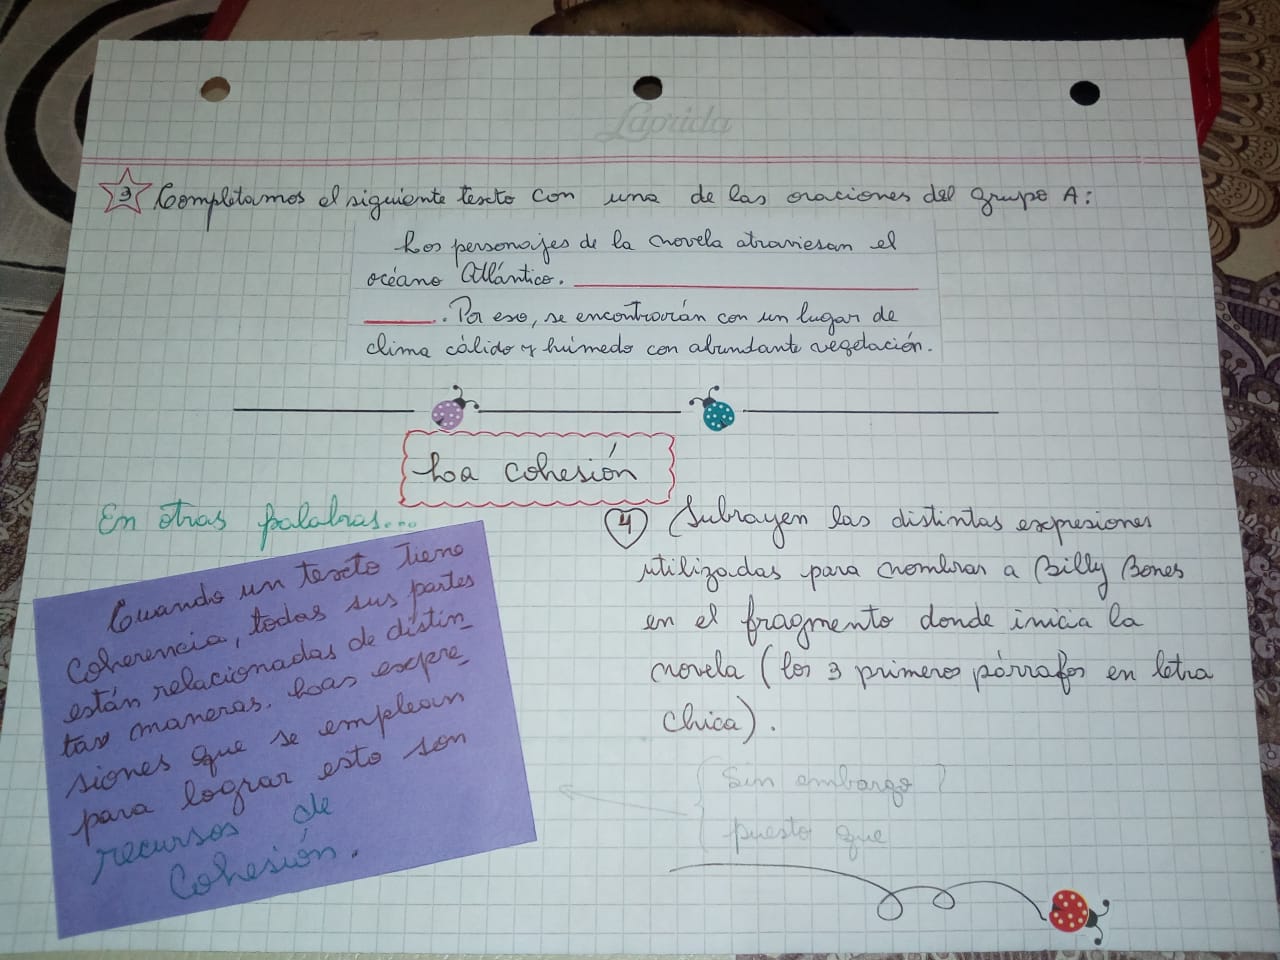 Laprida
3 Completamos el siguiente texto con una de las oraciones del grupo A:
Los personajes de la novela atraviesan el
océano Atlántico.
. Por eso, se encontrarán con un lugar de
clima cálido y húmedo con abundante vegetación.
La cohesión
En otras palabras...
Cuando un texto tiene
coherencia, todas sus partes
están relacionadas de distin_
tas maneras. Las expre_
siones que se emplean
para lograr esto son
recursos de
cohesión.
4 Subrayen las distintas expresiones
utilizadas para nombrar a Billy Bones
en el fragmento donde inicia la
novela (los 3 primeros párrafos en letra
chica).
Sin embargo
puesto que